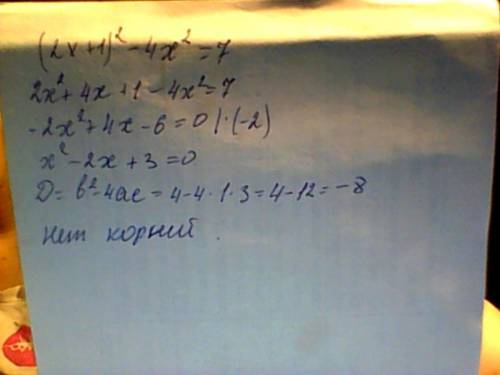 (2x+1)² - 4x² = 7
2x² + 4x + 1 - 4x² = 7
-2x² + 4x - 6 = 0 | · (-2)
x² - 2x + 3 = 0
D = b² - 4ac = 4 - 4 · 1 · 3 = 4 - 12 = -8
Нет корний.